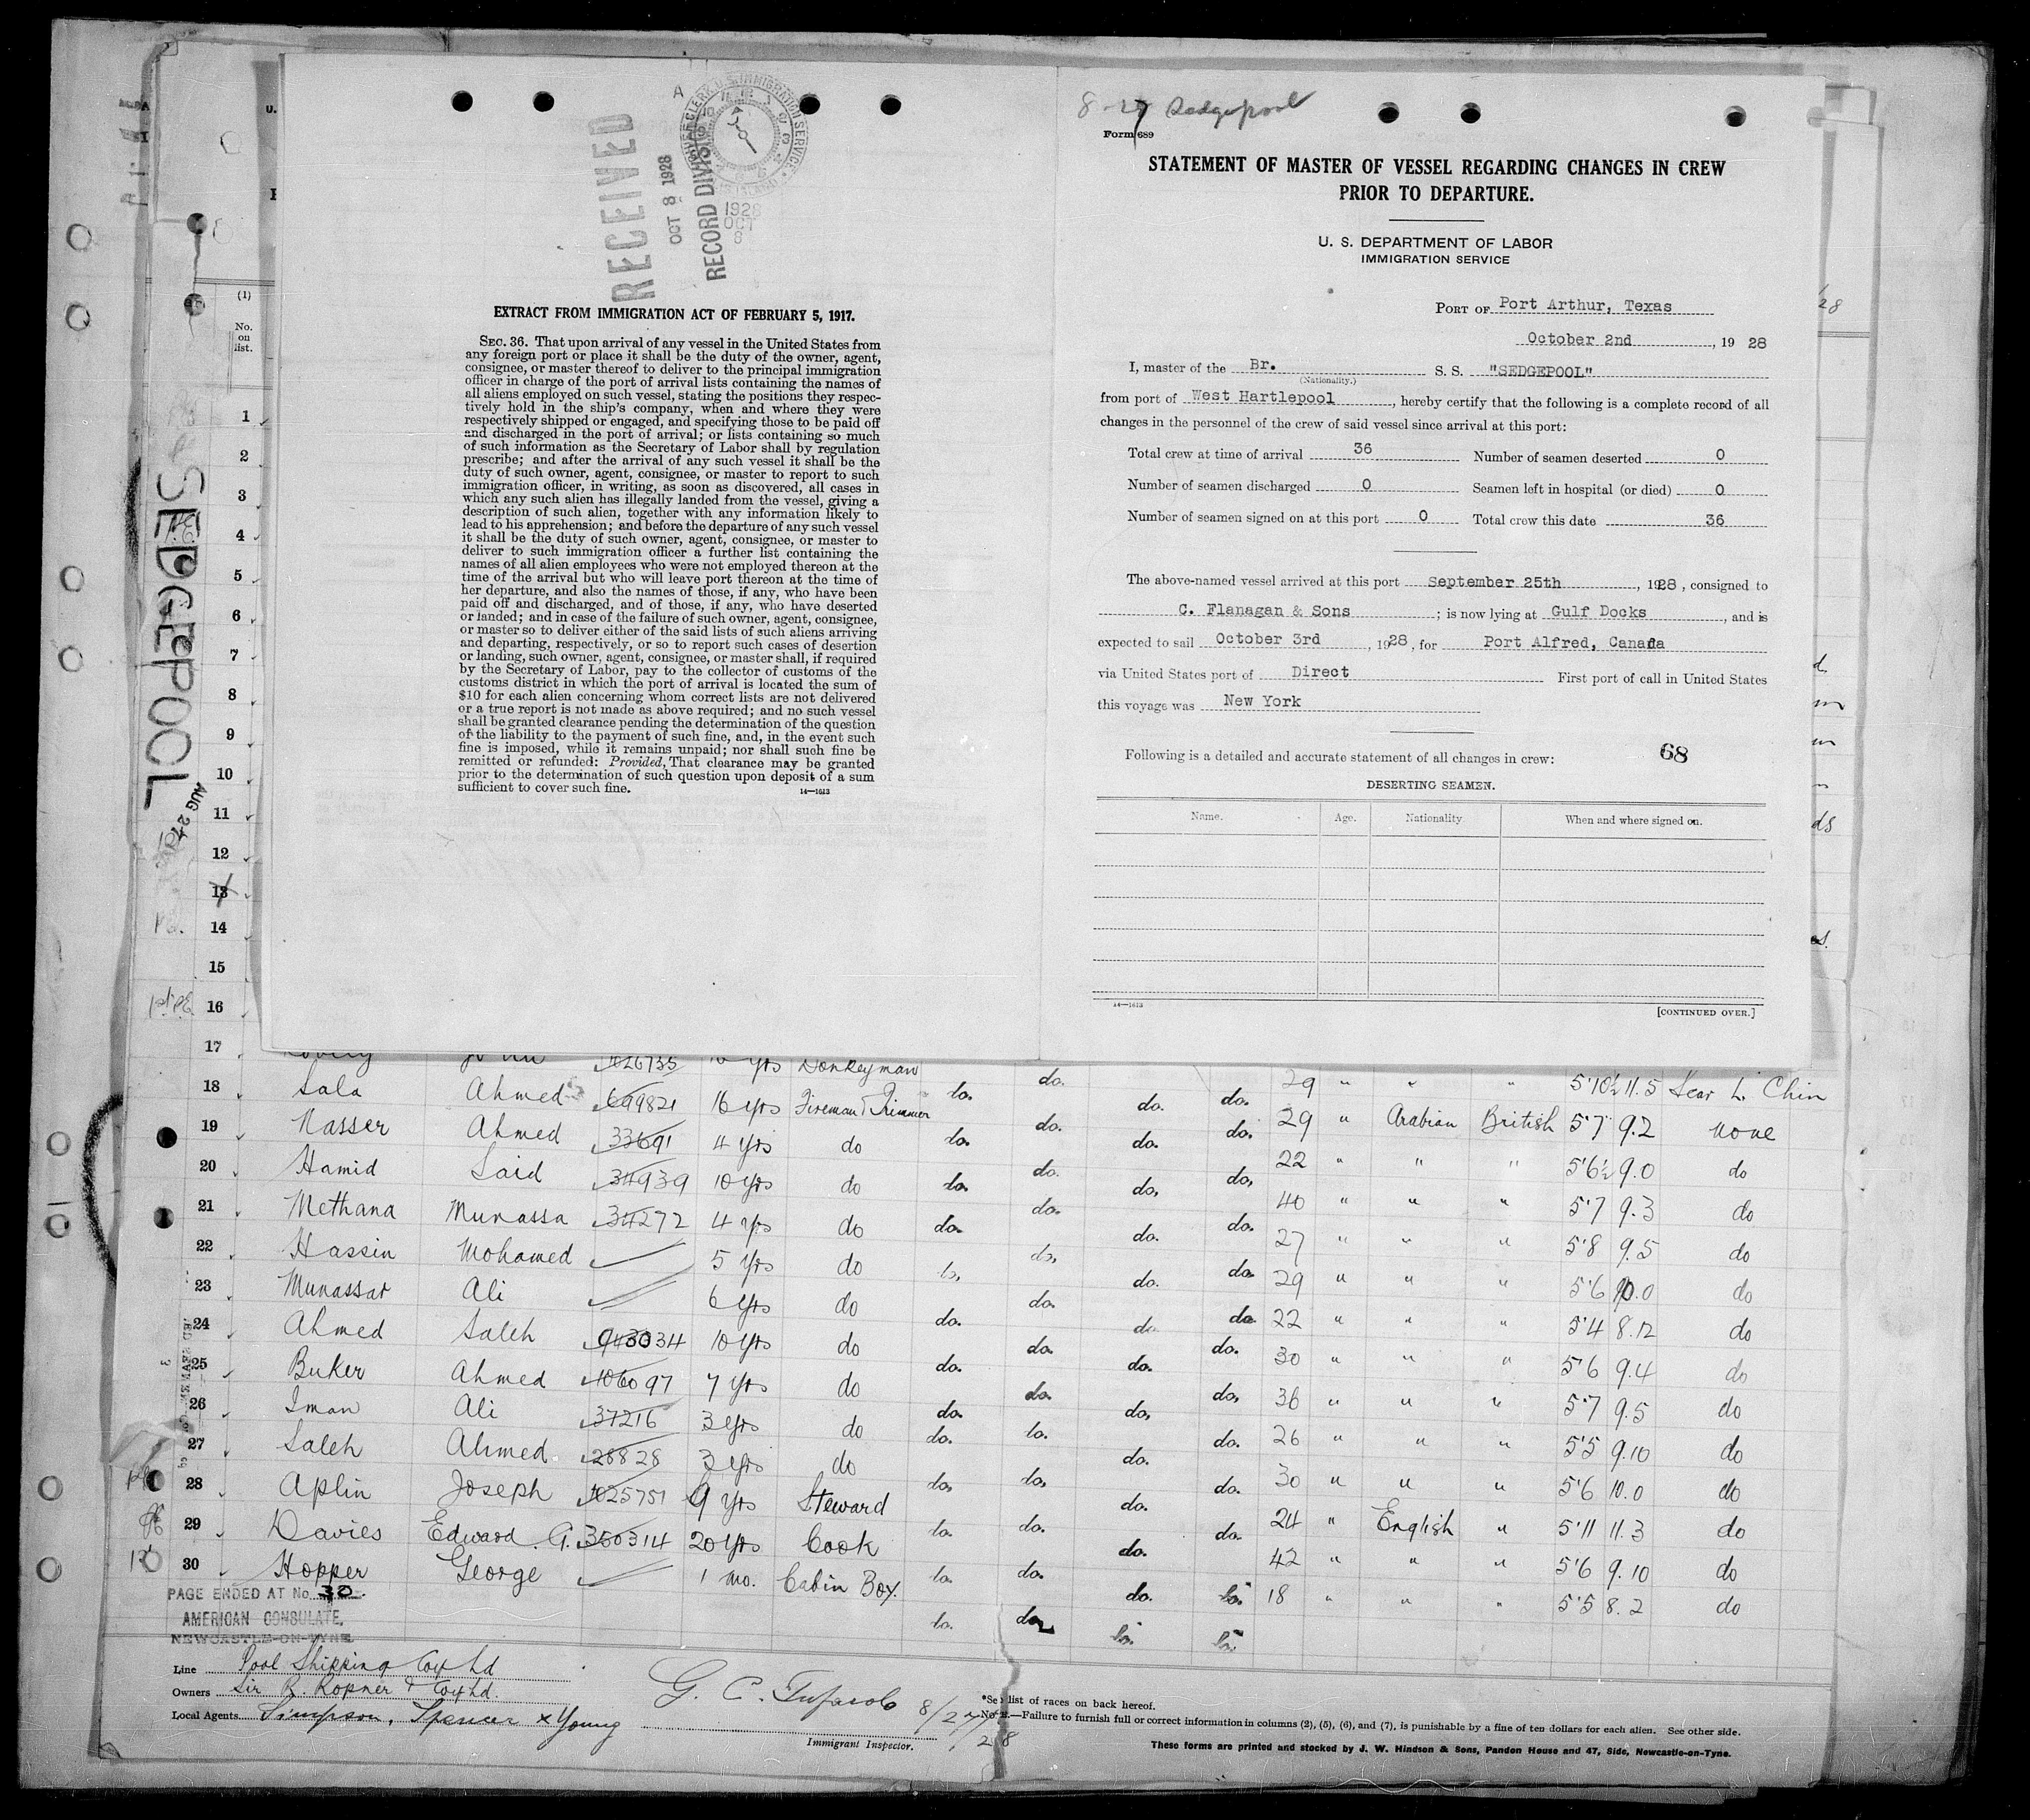 RECEIVED
OCT 8 1928
RECORD DIVISION
1928
OCT
8
EXTRACT FROM IMMIGRATION ACT OF FEBRUARY 5, 1917.
SEC. 36. That upon arrival of any vessel in the United States from
any foreign port or place it shall be the duty of the owner, agent,
consignee, or master thereof to deliver to the principal immigration
officer in charge of the port of arrival lists containing the names of
all aliens employed on such vessel, stating the positions they respec-
tively hold in the ship's company, when and where they were
respectively shipped or engaged, and specifying those to be paid off
and discharged in the port of arrival; or lists containing so much
of such information as the Secretary of Labor shall by regulation
prescribe; and after the arrival of any such vessel it shall be the
duty of such owner, agent, consignee, or master to report to such
immigration officer, in writing, as soon as discovered, all cases in
which any such alien has illegally landed from the vessel, giving a
description of such alien, together with any information likely to
lead to his apprehension; and before the departure of any such vessel
it shall be the duty of such owner, agent, consignee, or master to
deliver to such immigration officer a further list containing the
names of all alien employees who were not employed thereon at the
time of the arrival but who will leave port thereon at the time of
her departure, and also the names of those, if any, who have been
paid off and discharged, and of those, if any, who have deserted
or landed; and in case of the failure of such owner, agent, consignee,
or master so to deliver either of the said lists of such aliens arriving
and departing, respectively, or so to report such cases of desertion
or landing, such owner, agent, consignee, or master shall, if required
by the Secretary of Labor, pay to the collector of customs of the
customs district in which the port of arrival is located the sum of
$10 for each alien concerning whom correct lists are not delivered
or a true report is not made as above required; and no such vessel
shall be granted clearance pending the determination of the question
of the liability to the payment of such fine, and, in the event such
fine is imposed, while it remains unpaid; nor shall such fine be
remitted or refunded: Provided, That clearance may be granted
prior to the determination of such question upon deposit of a sum
sufficient to cover such fine.
14—1613
8-27 Sedgepool
Form 689
STATEMENT OF MASTER OF VESSEL REGARDING CHANGES IN CREW
PRIOR TO DEPARTURE.
U. S. DEPARTMENT OF LABOR
IMMIGRATION SERVICE
PORT OF Port Arthur, Texas
October 2nd, 1928
I, master of the Br. S. S. "SEDGEPOOL"
(Nationality.)
from port of West Hartlepool, hereby certify that the following is a complete record of all
changes in the personnel of the crew of said vessel since arrival at this port:
Total crew at time of arrival 36 Number of seamen deserted 0
Number of seamen discharged 0 Seamen left in hospital (or died) 0
Number of seamen signed on at this port 0 Total crew this date 36
The above-named vessel arrived at this port September 25th, 1928, consigned to
C. Flanagan & Sons; is now lying at Gulf Docks, and is
expected to sail October 3rd, 1928, for Port Alfred, Canada
via United States port of Direct First port of call in United States
this voyage was New York
Following is a detailed and accurate statement of all changes in crew: 68
DESERTING SEAMEN.
Name. Age. Nationality When and where signed on.
14—1613
[CONTINUED OVER.]
SEDGEPOOL
AUG 27
(1)
No.
on
list.
1
2
3
4
5
6
7
8
9
10
11
12
13
14
15
16
17 1026735 Donkeyman do.
18 Sala Ahmed 699821 16 yrs Fireman & Trimmer do. do. do. 29 " " " 5'10½ 11.5 Scar L. Chin
19 Nasser Ahmed 33691 4 yrs do do. do. do. do. 29 " Arabian British 5'7 9.2 None
20 Hamid Said 34939 10 yrs do do. do. do. do. 22 " " " 5'6½ 9.0 do
21 Methana Munassa 34272 4 yrs do do. do. do. do. 40 " " " 5'7 9.3 do
22 Hassin Mohamed 5 yrs do do. do. do. do. 27 " " " 5'8 9.5 do
23 Munassar Ali 6 yrs do do. do. do. do. 29 " " " 5'6 10.0 do
24 Ahmed Saleh 943034 10 yrs do do. do. do. do. 22 " " " 5'4 8.12 do
25 Buker Ahmed 106097 7 yrs do do. do. do. do. 30 " " " 5'6 9.4 do
26 Iman Ali 37216 3 yrs do do. do. do. do. 36 " " " 5'7 9.5 do
27 Saleh Ahmed 28828 3 yrs do do. do. do. do. 26 " " " 5'5 9.10 do
28 Aplin Joseph 1025751 9 yrs Steward do. do. do. do. 30 " " " 5'6 10.0 do
29 Davies Edward. G. 350314 20 yrs Cook do. do. do. do. 24 " English " 5'11 11.3 do
30 Hopper George 1 mo. Cabin Boy. do. do. do. do. 42 " " " 5'6 9.10 do
18 " " " 5'5 8.2 do
PAGE ENDED AT No. 30.
AMERICAN CONSULATE,
NEWCASTLE-ON-TYNE
Line Pool Shipping Coy Ld
Owners Sir R. Ropner & Coy Ld.
Local Agents Simpson, Spencer & Young
8/27/28
Immigrant Inspector.
*See list of races on back hereof.
Note.—Failure to furnish full or correct information in columns (2), (5), (6), and (7), is punishable by a fine of ten dollars for each alien. See other side.
These forms are printed and stocked by J. W. Hindson & Sons, Pandon House and 47, Side, Newcastle-on-Tyne.